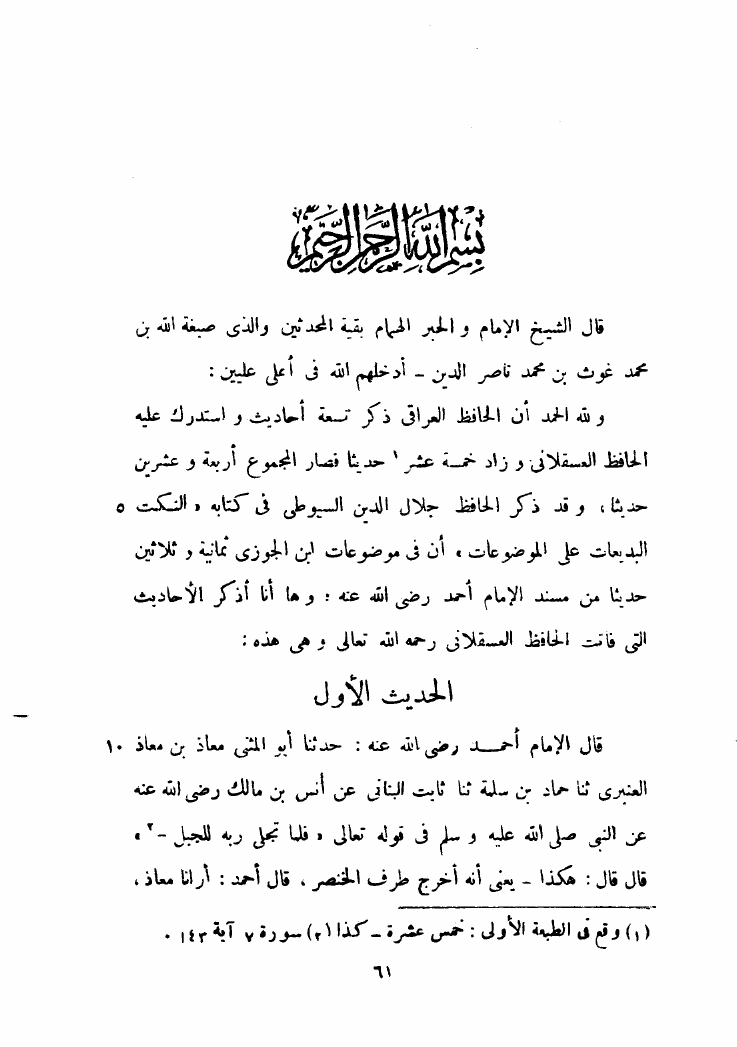 بسم الله الرحمن الرحيم
قال الشيخ الإمام و الحبر الهمام بقية المحدثين والدى صبغة الله بن
محمد غوث بن محمد ناصر الدين ــ أدخلهم الله فى أعلى عليين :
و لله الحمد أن الحافظ العراقى ذكر تسعة أحاديث و استدرك عليه
الحافظ العسقلانى و زاد خمسة عشر ١ حديثا فصار المجموع أربعة و عشرين
حديثا ، و قد ذكر الحافظ جلال الدين السيوطى فى كتابه « النكت ٥
البديعات على الموضوعات » أن فى موضوعات ابن الجوزى ثمانية و ثلاثين
حديثا من مسند الإمام أحمد رضى الله عنه : و ها أنا أذكر الأحاديث
التى فاتت الحافظ العسقلانى رحمه الله تعالى و هى هذه :
الحديث الأول
قال الإمام أحمد رضى الله عنه : حدثنا أبو المثنى معاذ بن معاذ ١٠
العنبرى ثنا حماد بن سلمة ثنا ثابت البنانى عن أنس بن مالك رضى الله عنه
عن النبى صلى الله عليه و سلم فى قوله تعالى « فلما تجلى ربه للجبل ــ ٢ »
قال قال : هكذا ــ يعنى أنه أخرج طرف الخنصر ، قال أحمد : أرانا معاذ ،
(١) وقع فى الطبعة الأولى : خمس عشرة ــ كذا (٢) سورة ٧ آية ١٤٣ .
٦١